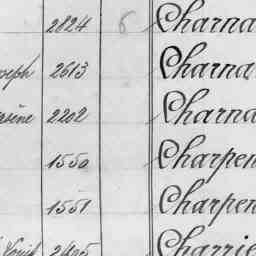 2824 6 Charna
seph 2613 Charna
rsène 2202 Charna
1550 Charpen
1551 Charpen
Louis 2495 Charrie